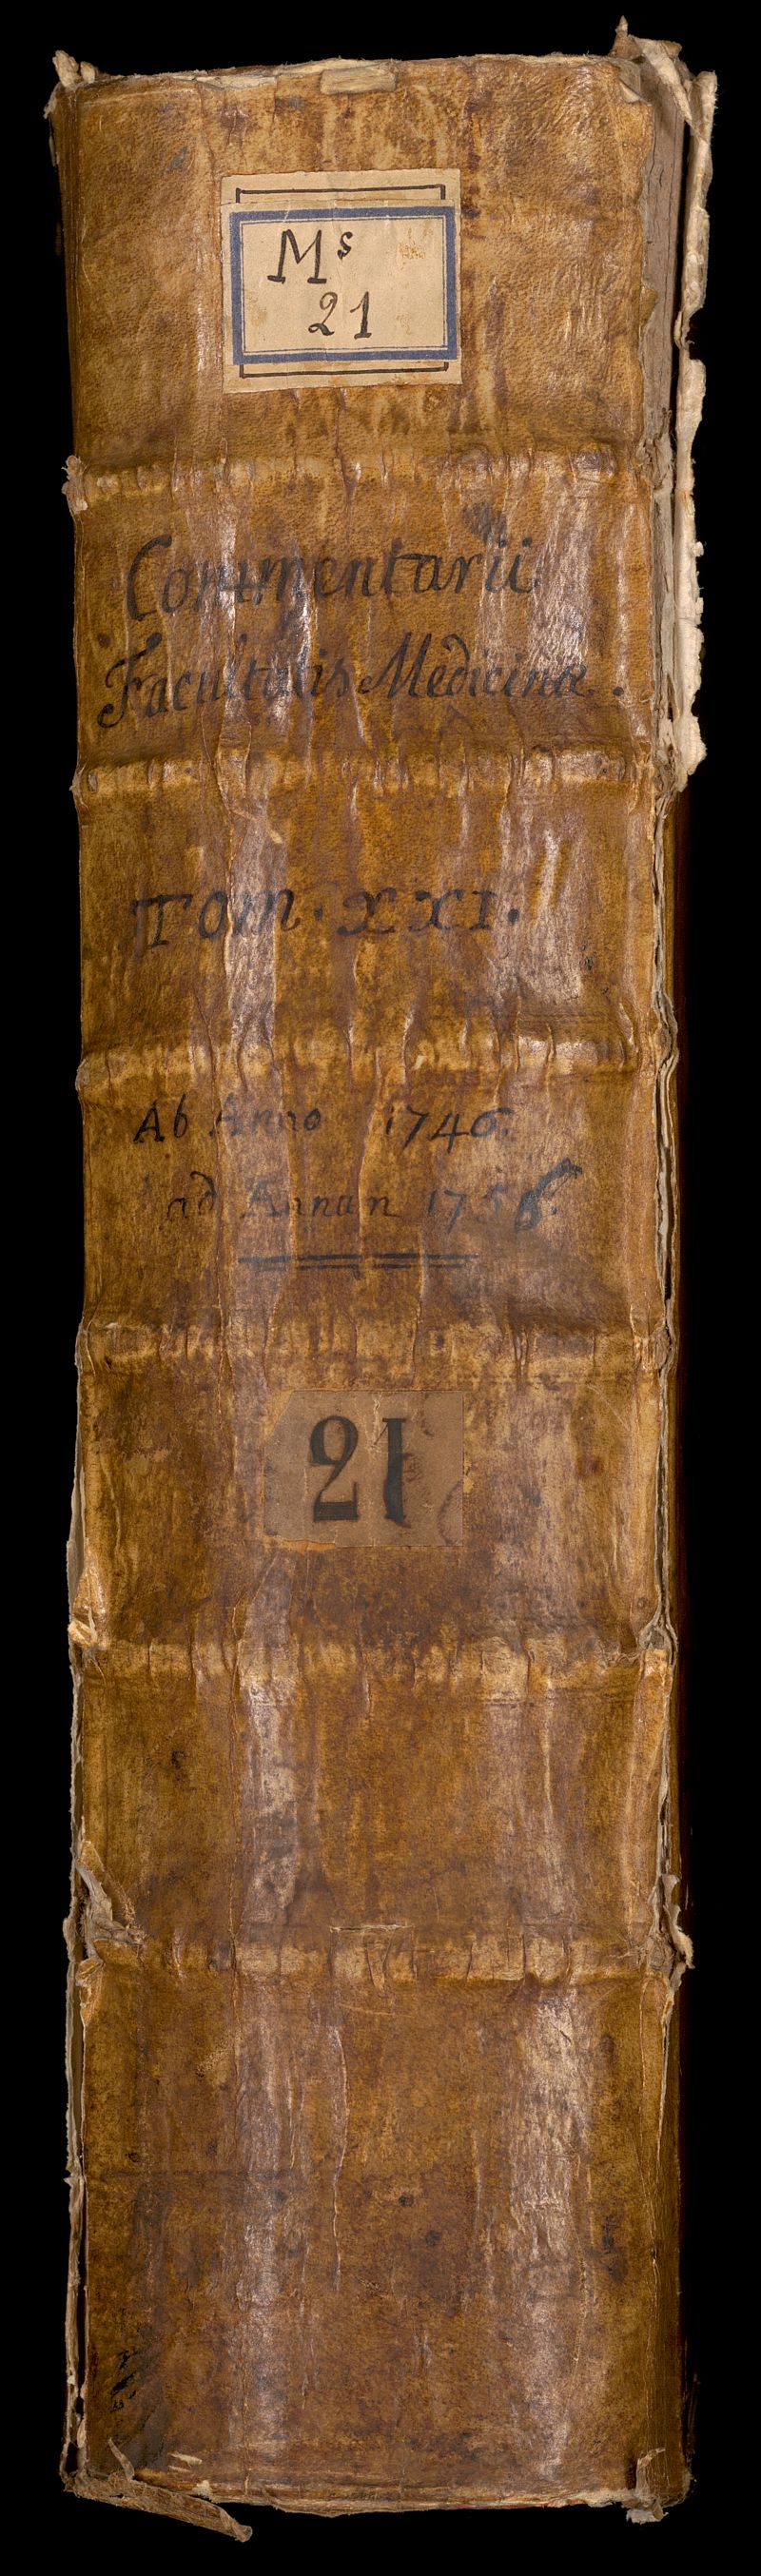 Ms
21
Commentarii
Facultatis Medicinæ.
Tom. XXI.
Ab Anno 1746.
ad Annum 1756.
21